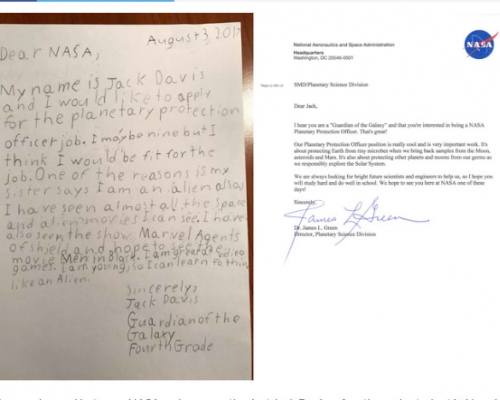 August 3, 2017
Dear NASA,
My name is Jack Davis
and I would like to apply
for the planetary protection
officer job. I maybe nine but I
think I would be fit for the
job. One of the reasons is my
sister says I am an alien also
I have seen almost all the space
and alien movies I can see. I have
also seen the show Marvel Agents
of shield and hope to see the
movie Men in Black. I am great at video
games. I am young, so I can learn to think
like an Alien.
Sincerely,
Jack Davis
Guardian of the
Galaxy
Fourth Grade
National Aeronautics and Space Administration
Headquarters
Washington, DC 20546-0001
NASA
SMD/Planetary Science Division
Dear Jack,
I hear you are a "Guardian of the Galaxy" and that you're interested in being a NASA
Planetary Protection Officer. That's great!
Our Planetary Protection Officer position is really cool and is very important work. It's
about protecting Earth from tiny microbes when we bring back samples from the Moon,
asteroids and Mars. It's also about protecting other planets and moons from our germs as
we responsibly explore the Solar System.
We are always looking for bright future scientists and engineers to help us, so I hope you
will study hard and do well in school. We hope to see you here at NASA one of these
days!
Sincerely,
James L Green
Dr. James L. Green
Director, Planetary Science Division